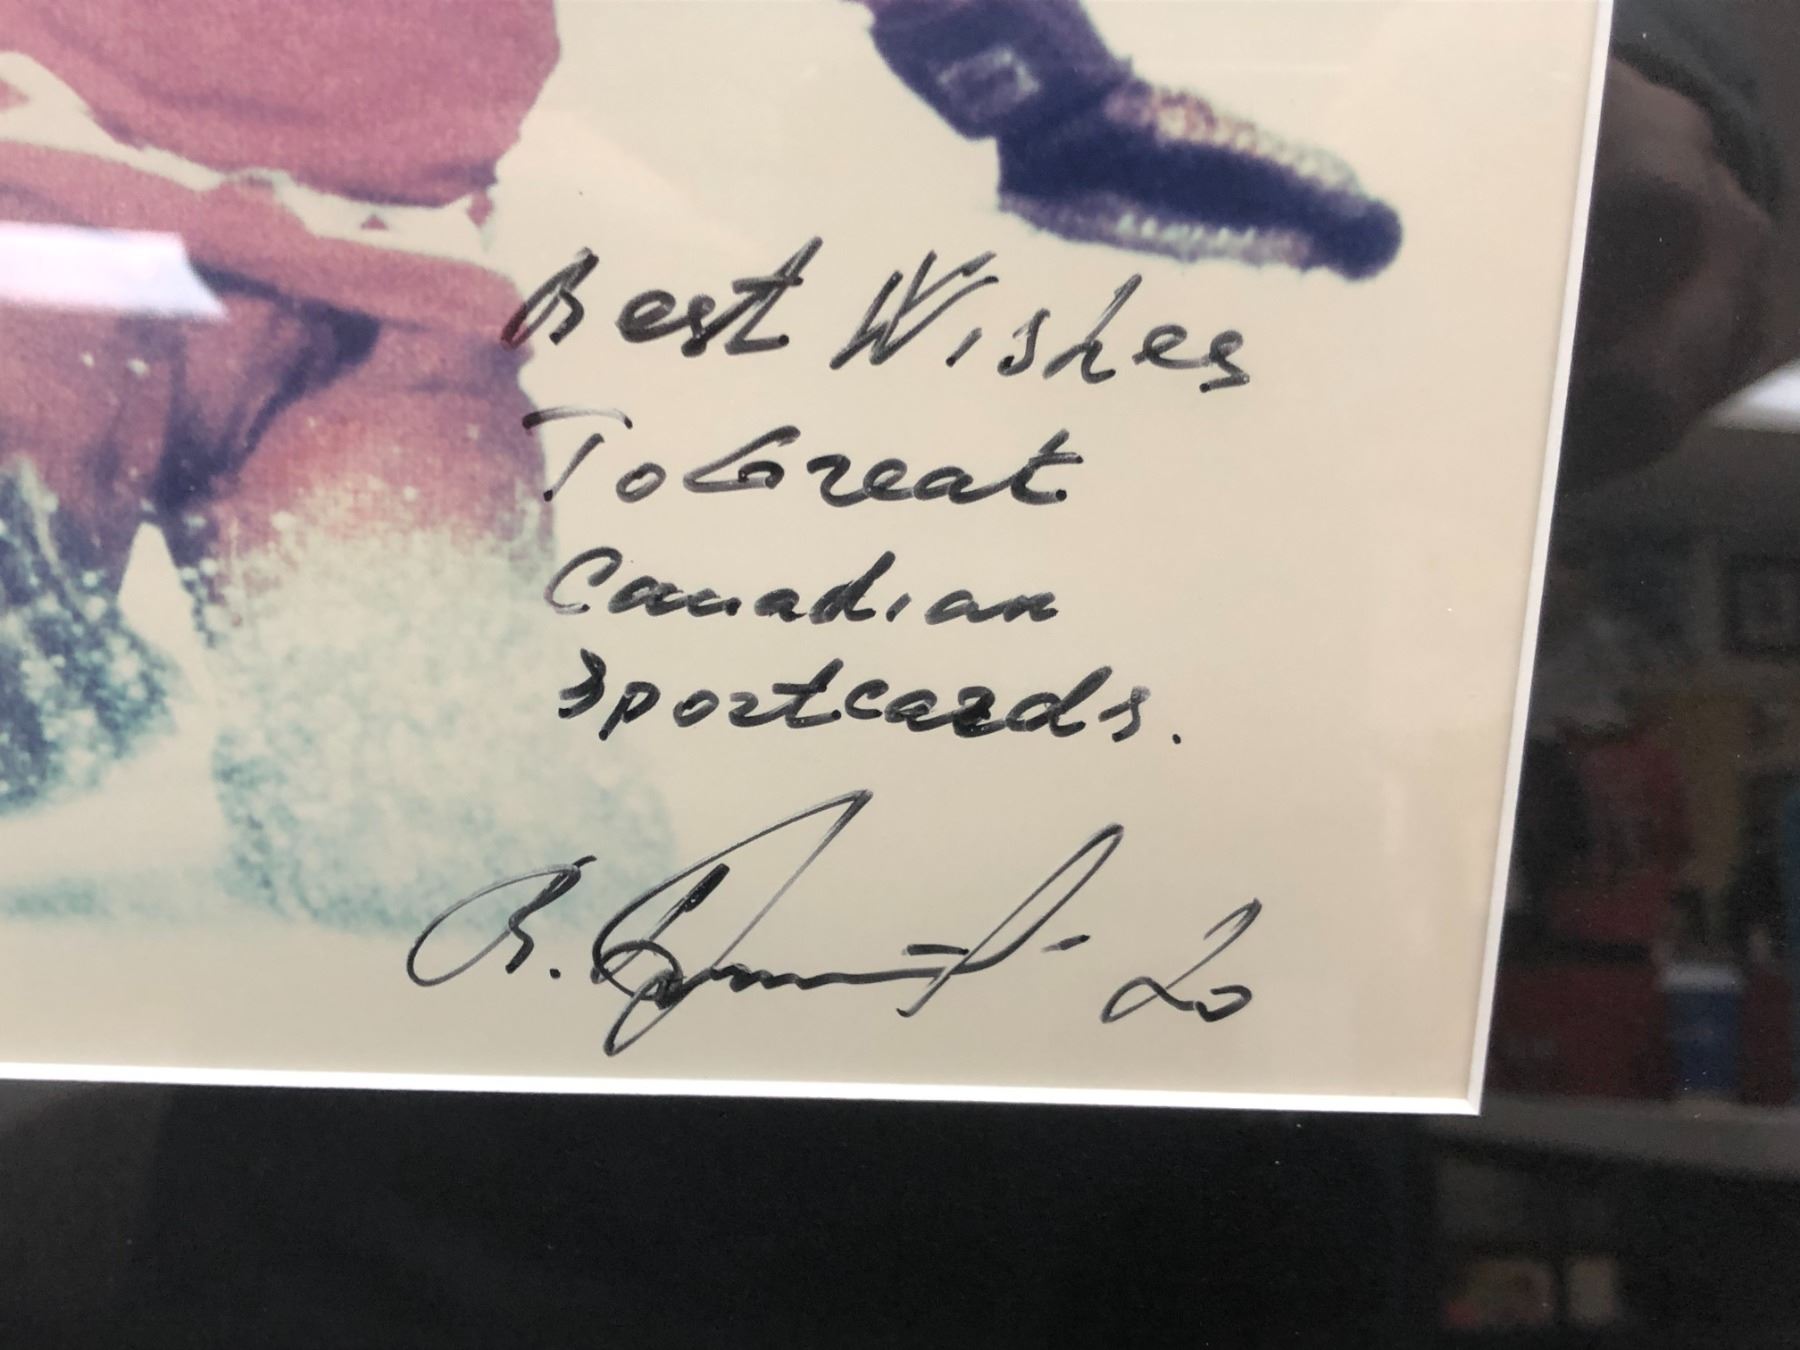 Best Wishes
To Great
Canadian
Sportcards.
20